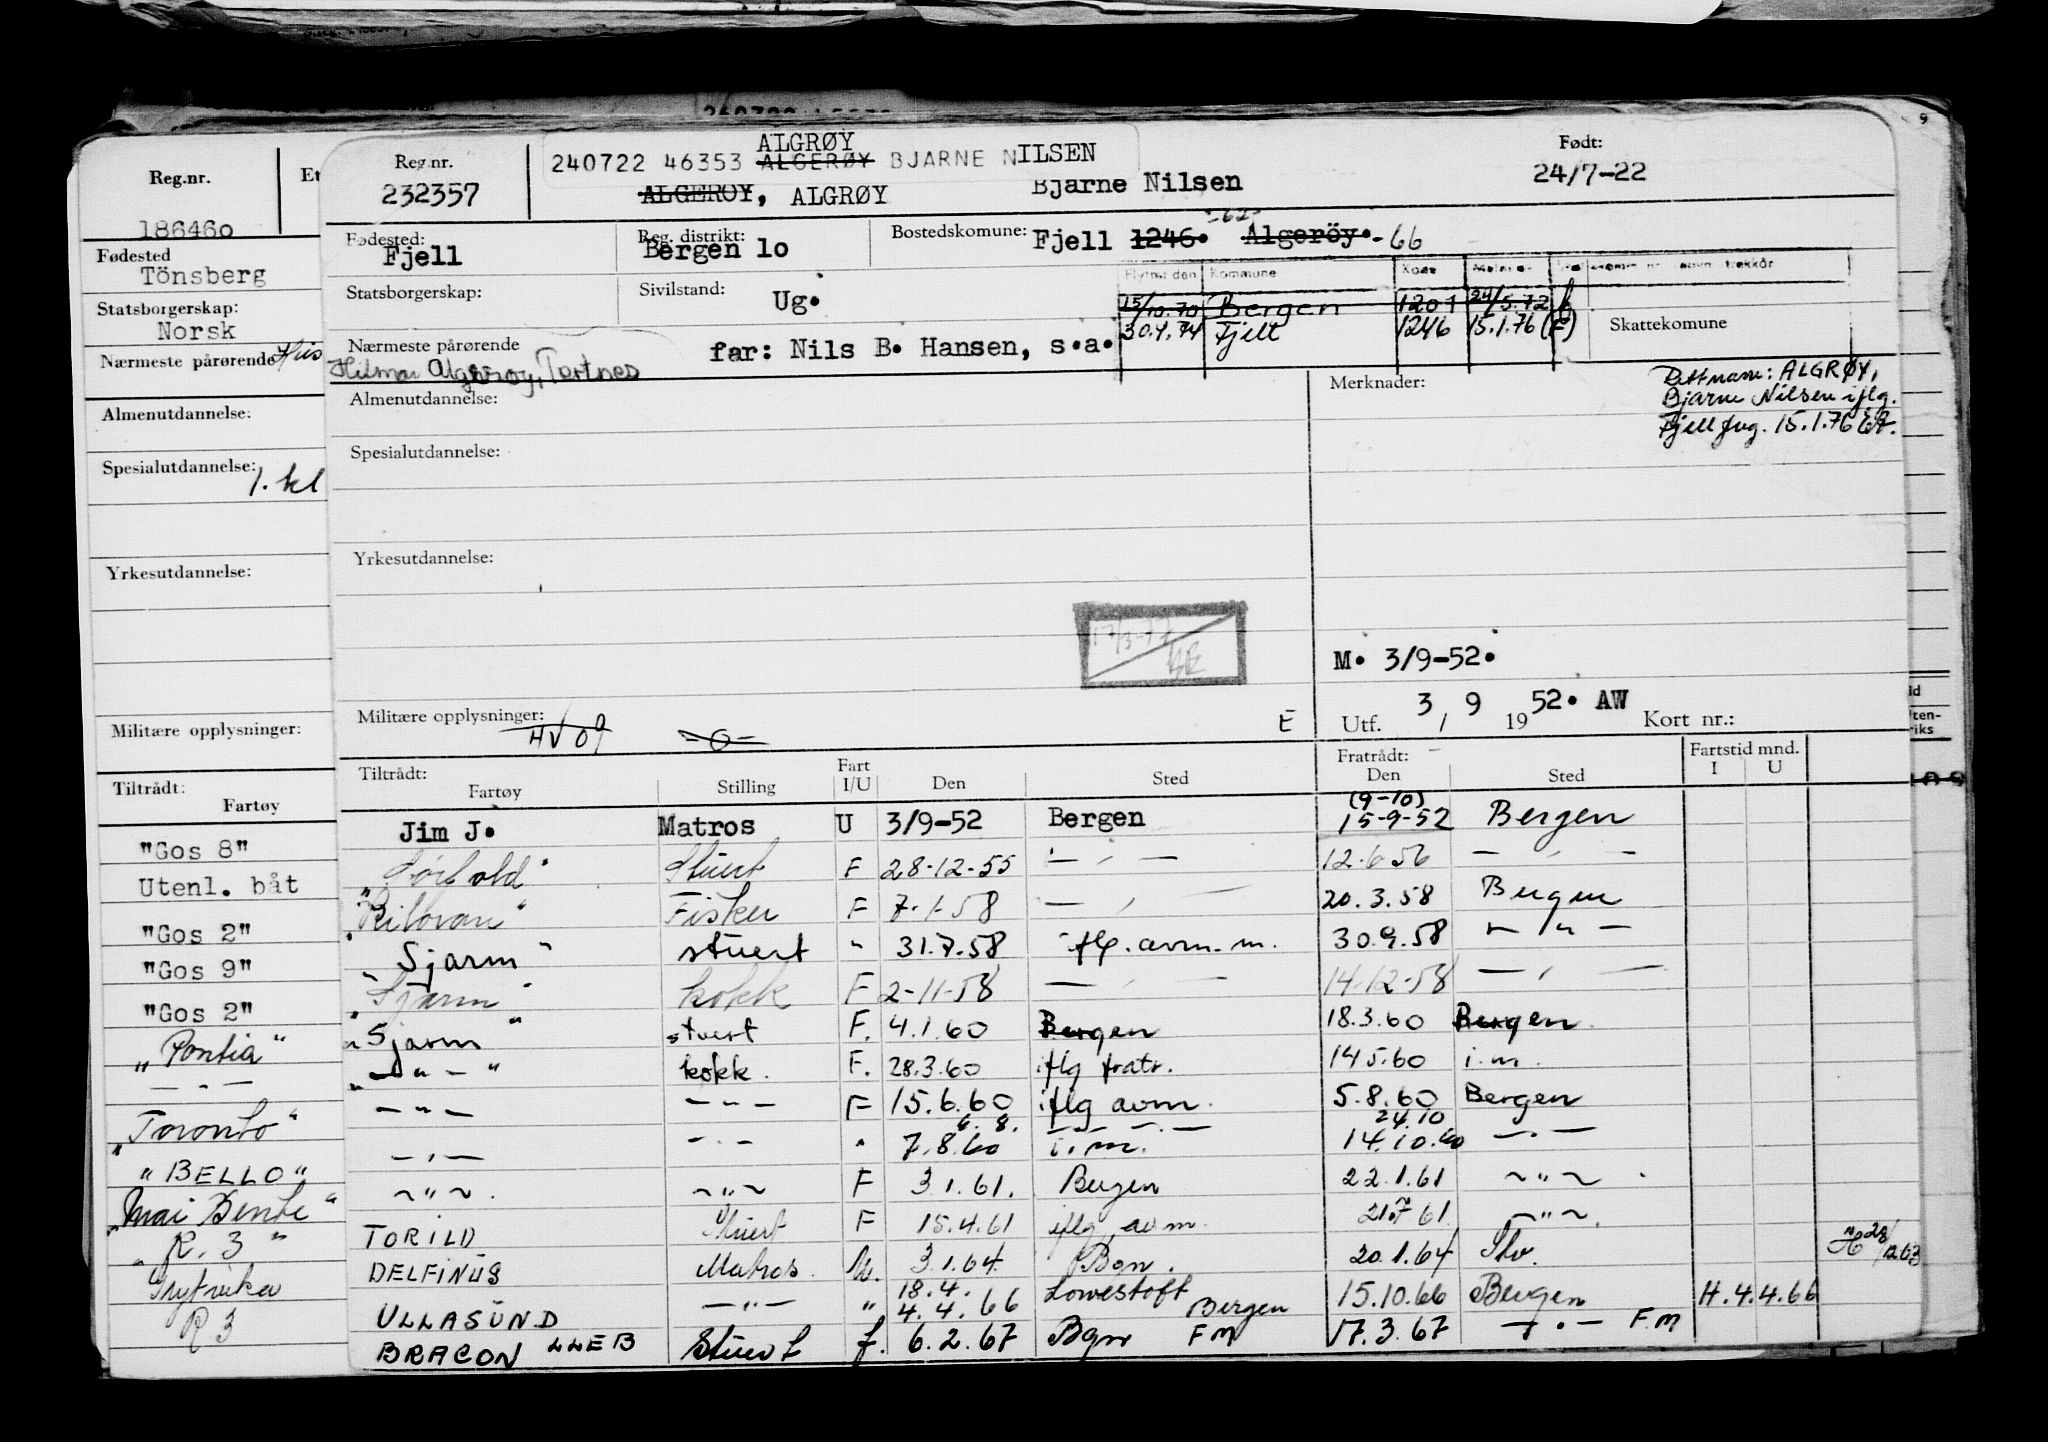 Reg.nr.
186460
Fødested
Tönsberg
Statsborgerskap:
Norsk
Nærmeste pårørende
Almenutdannelse:
Spesialutdannelse:
1. kl
Yrkesutdannelse:
Militære opplysninger:
Tiltrådt:
Fartøy
"Gos 8"
Utenl. båt
"Gos 2"
"Gos 9"
"Gos 2"
"Pontia"
— " —
"Toronto"
"BELLO"
"R. 3"
R 3
Reg.nr.
232357
ALGRØY
240722 46353 ALGERØY BJARNE NILSEN
ALGERØY, ALGRØY Bjarne Nilsen
Født:
24/7-22
Fødested:
Fjell
Reg. distrikt:
Bergen lo
Bostedskomune: Fjell 1246. Algeröy. -66
-62-
Statsborgerskap:
Sivilstand: Ug.
Flyttet den Kommune Kode
15/10.70 Bergen 1201 24/5.72
30.4.74 Fjell 1246 15.1.76 (F)
Skattekomune
Nærmeste pårørende
far: Nils B. Hansen, s.a.
Hilmar Algerøy, Tertnes
Almenutdannelse:
Merknader:
Rett navn: ALGRØY,
Bjarne Nilsen iflg.
Fjell freg. 15.1.76
Spesialutdannelse:
Yrkesutdannelse:
M. 3/9-52.
Militære opplysninger:
HV 09 -0-
E
Utf. 3 / 9 1952. AW Kort nr.:
Tiltrådt:
Fartøy Stilling Fart I/U Den Sted Fratrådt: Den Sted Fartstid mnd. I U
Jim J. Matros U 3/9-52 Bergen (9-10) 15-9-52 Bergen
Stuert F 28-12-55 — " — 12.6 56 — " —
Fisker F 7-1-58 — " — 20.3.58 Bergen
"Sjarm" stuert " 31.7.58 iflg. avm. m. 30.9.58 — " —
"Sjarm" kokk F 2-11-58 — " — 14-12-58 — " —
"Sjarm" stuert F. 4.1.60 Bergen 18.3.60 Bergen.
"— " —" kokk. F. 28.3.60 iflg fratr. 14 5.60 i.m.
— " — — " — F 15.6.60 iflg avm. 5.8.60 Bergen
— " — — " — " 6. 8. 7.8.60 i.m. 24.10 14.10.60 — " —
— " — — " — F 3 1.61. Bergen 22.1.61 — " —
TORILD Stuert F 15.4.61 iflg. avm. 21.7 61 — " —
DELFINUS Matros. U. 3.1.64 Bgn. 20.1.64 Stv.
ULLASUND — " — " 18.4. 4.4.66 Lowestoft Bergen 15.10.66 Bergen H.4.4.66
BRACON LLEB Stuert f. 6.2.67 Bgn FM 17.3.67 — " — F.M